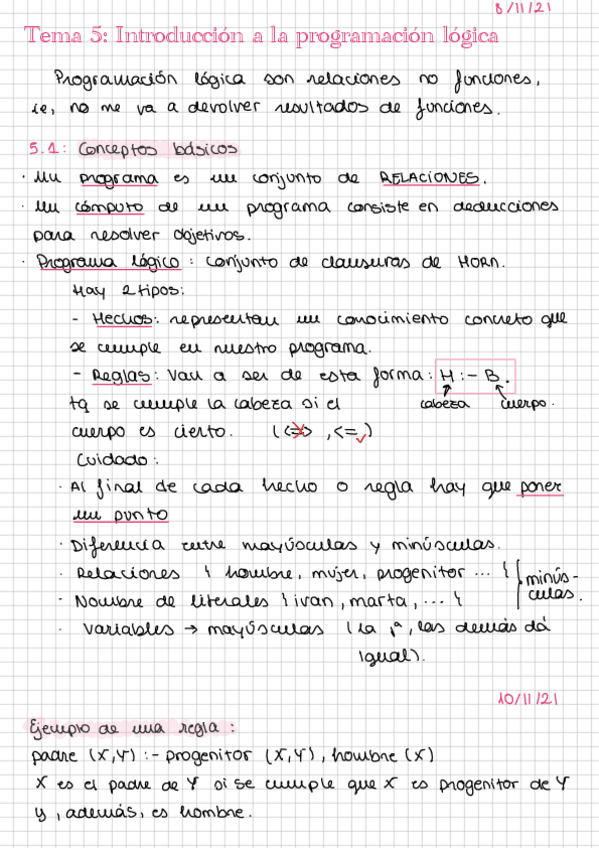 8/11/21
Tema 5: Introducción a la programación lógica
Programación lógica son relaciones no funciones,
ie, no me va a devolver resultados de funciones.
5.1: Conceptos básicos
· Un programa es un conjunto de RELACIONES.
· Un cómputo de un programa consiste en deducciones
para resolver objetivos.
· Programa lógico: conjunto de clausuras de HORN.
Hay 2 tipos:
- Hechos: representan un conocimiento concreto que
se cumple en nuestro programa.
- Reglas: Van a ser de esta forma: H :- B.
tq se cumple la cabeza si el cabeza cuerpo.
cuerpo es cierto. (<=> , <= )
Cuidado:
· Al final de cada hecho o regla hay que poner
un punto
· Diferencia entre mayúsculas y minúsculas.
· Relaciones { hombre, mujer, progenitor ... } minús-
· Nombre de literales { ivan, marta, ... } culas.
· Variables → mayúsculas (la 1ª, las demás dá
igual).
10/11/21
Ejemplo de una regla:
padre (X,Y) :- progenitor (X,Y), hombre (X)
X es el padre de Y si se cumple que X es progenitor de Y
y, además, es hombre.